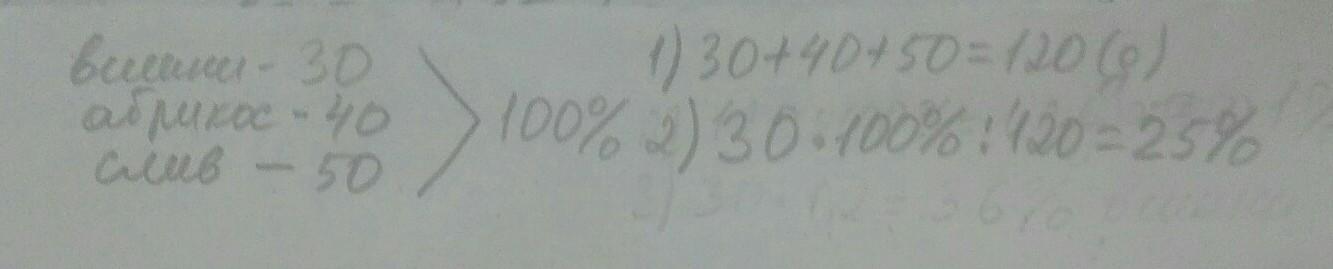 вишни - 30
абрикос - 40
слив - 50
100%
1) 30+40+50=120(д)
2) 30·100%:120=25%
3) 30 : 1,2 = 36%